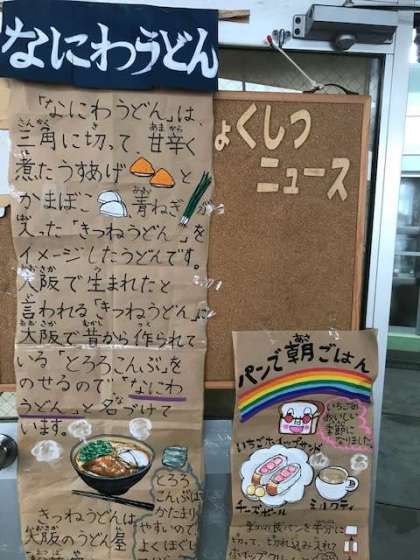 なにわうどん
「なにわうどん」は、
三角に切って、甘辛く
さんかく
あまから
煮たうすあげ と
に
かまぼこ、青ねぎが
あお
入った「きつねうどん」を
イメージしたうどんです。
大阪で生まれたと
おおさか
言われる「きつねうどん」に
大阪で昔から作られて
おおさか
むかし
いる「とろろこんぶ」を
のせるので「なにわ
うどん」と名づけて
います。
きつねうどんは
大阪のうどん屋
おおさか
とろろ
こんぶは
かたまり
やすいので
よくほぐし
ょくしつ
ニュース
パンで朝ごはん
あさ
いちごの
おいしい
季節に
なりました
いちごホイップサンド
チーズボール
ミルクティ
切って、切れ込みを入れて